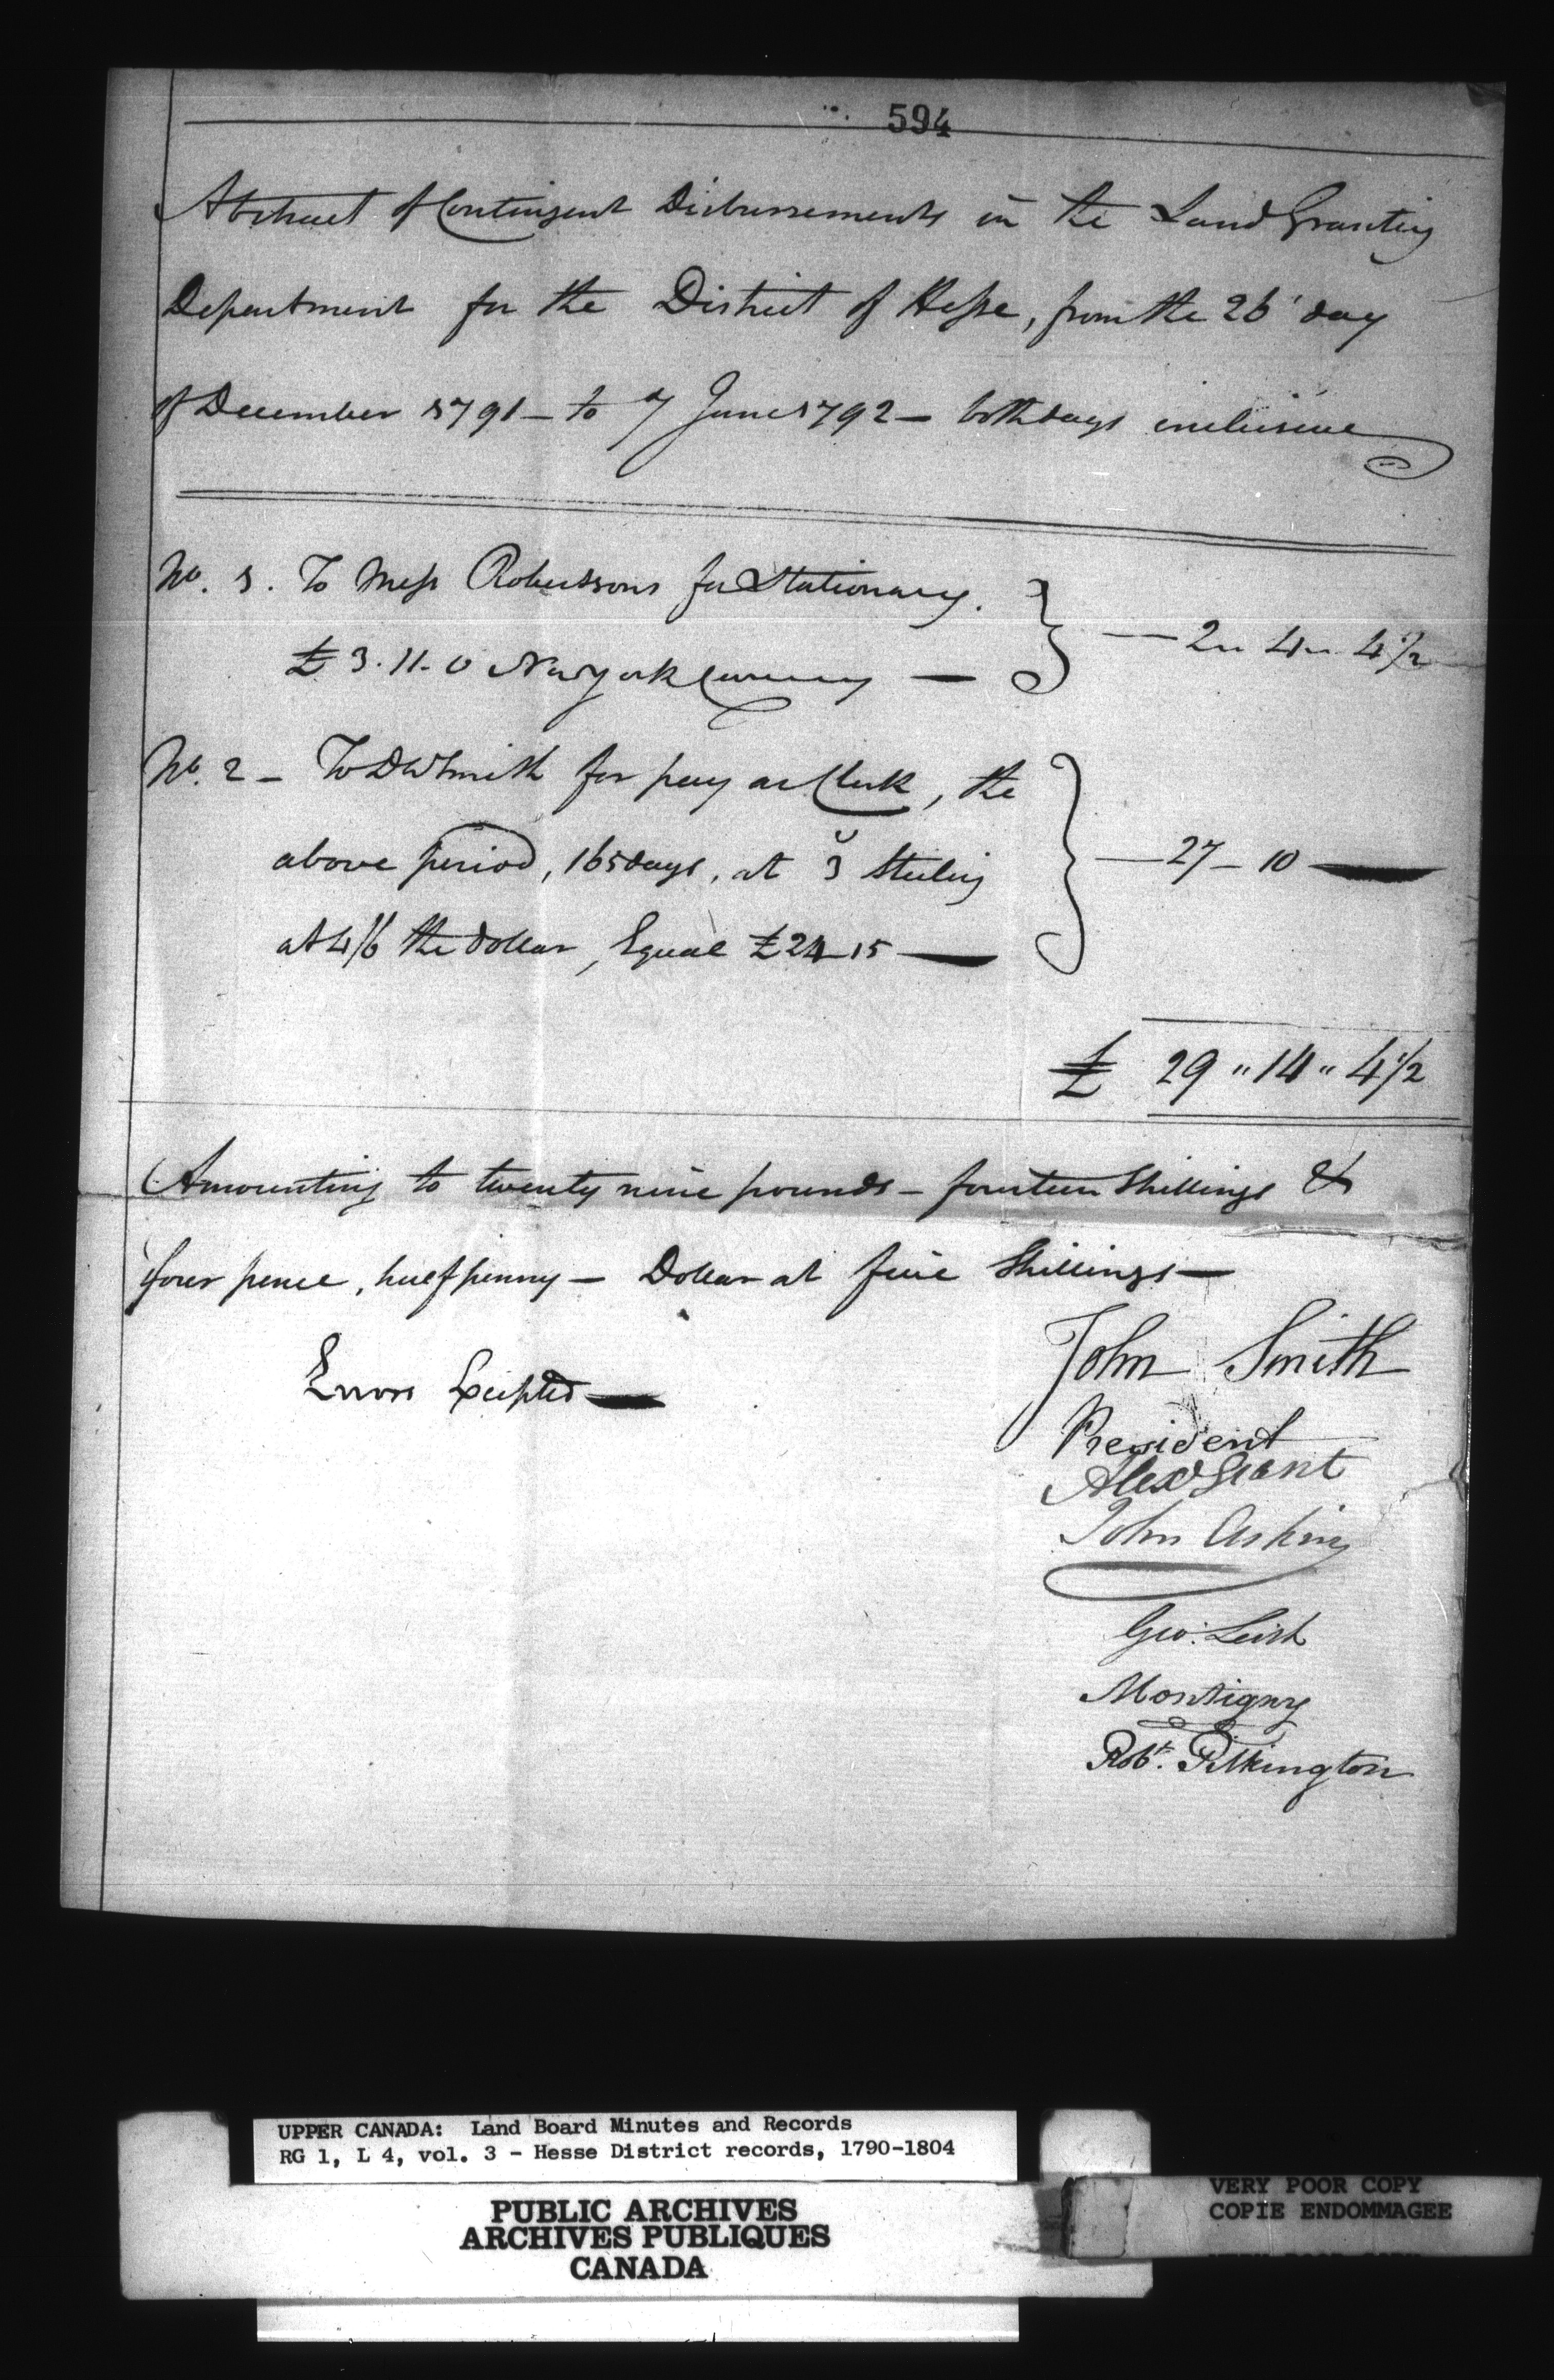 594
Abstract of Contingent Disbursements in the Land Granting
Department for the District of Hesse, from the 26' day
of December 1791 — to 7 June 1792 — both days inclusive
No. 1. To Mess Robertsons for Stationary.
£3.11.0 New York Currency —
— 2 " 4 " 4½
No. 2 — To DW Smith for pay as Clerk, the
above period, 165 days, at 3 Sterling
at 4/6 the dollar, Equal £24 — 15 —
— 27 — 10 —
£ 29 " 14 " 4½
Amounting to twenty nine pounds — fourteen Shillings &
four pence, halfpenny — Dollar at five Shillings —
Errors Excepted —
John Smith
President
Alexr Grant
John Askin
Geo: Leith
Montigny
Robt. Pilkington
UPPER CANADA: Land Board Minutes and Records
RG 1, L 4, vol. 3 - Hesse District records, 1790-1804
PUBLIC ARCHIVES
ARCHIVES PUBLIQUES
CANADA
VERY POOR COPY
COPIE ENDOMMAGEE